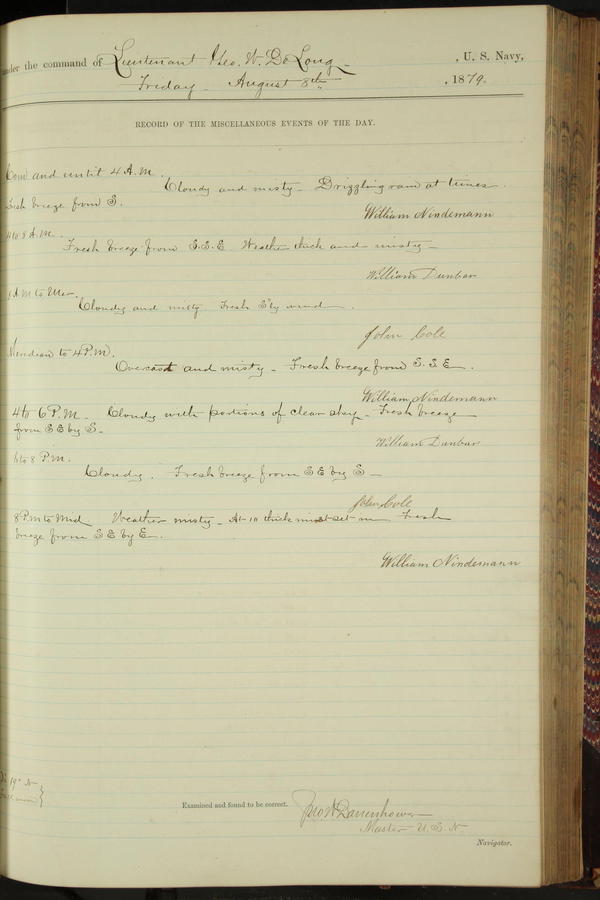 under the command of Lieutenant Geo. W. De Long, U. S. Navy,
Friday August 8th, 1879.
RECORD OF THE MISCELLANEOUS EVENTS OF THE DAY.
Com and until 4 A.M.
Cloudy and misty - Drizzling rain at times.
Fresh breeze from S.
William Nindemann
4 to 8 A.M.
Fresh breeze from S.S.E. Weather thick and misty -
William Dunbar
8 A M to Mer.
Cloudy and misty Fresh S'ly wind.
John Cole
Meridian to 4 P.M.
Overcast and misty - Fresh breeze from S.S.E.
William Nindemann
4 to 6 P.M. - Cloudy with portions of clear sky - Fresh breeze
from SE by S -
William Dunbar
6 to 8 P.M.
Cloudy. Fresh breeze from SE by S -
John Cole
8 P.M to Mid Weather misty - At 10 thick mist set in Fresh
breeze from SE by E.
William Nindemann
19° N
Examined and found to be correct. Jno W Danenhower
Master U.S.N.
Navigator.